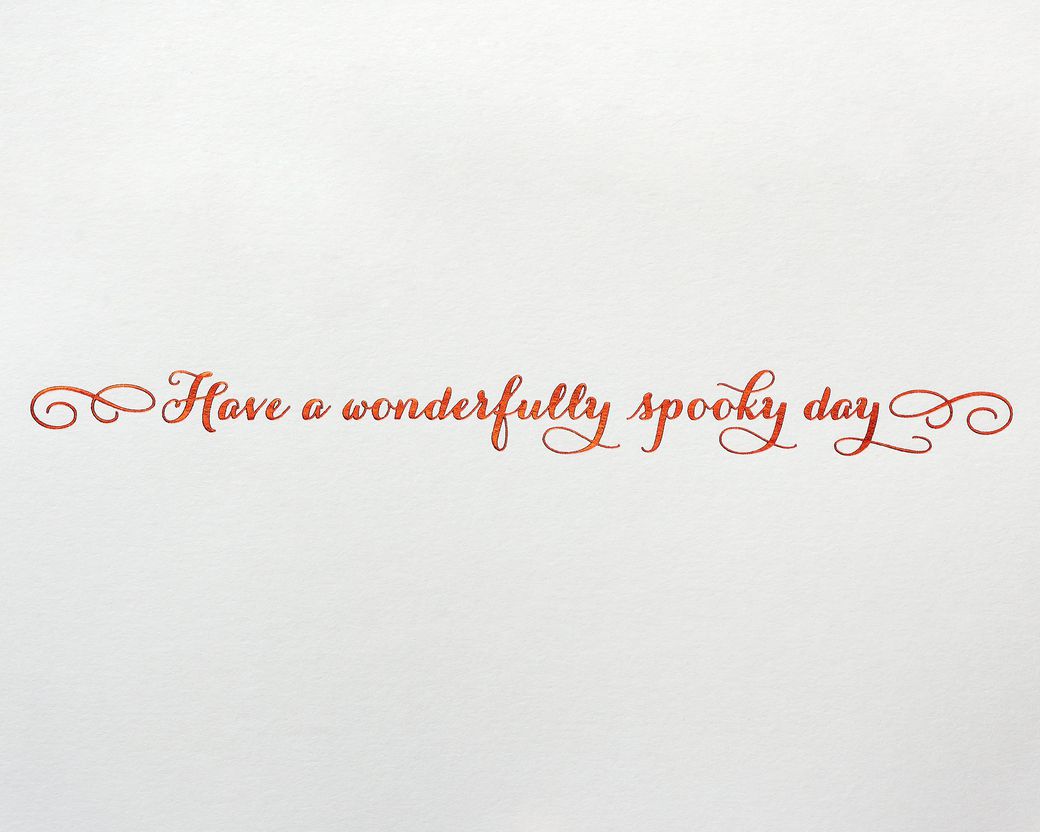 Have a wonderfully spooky day